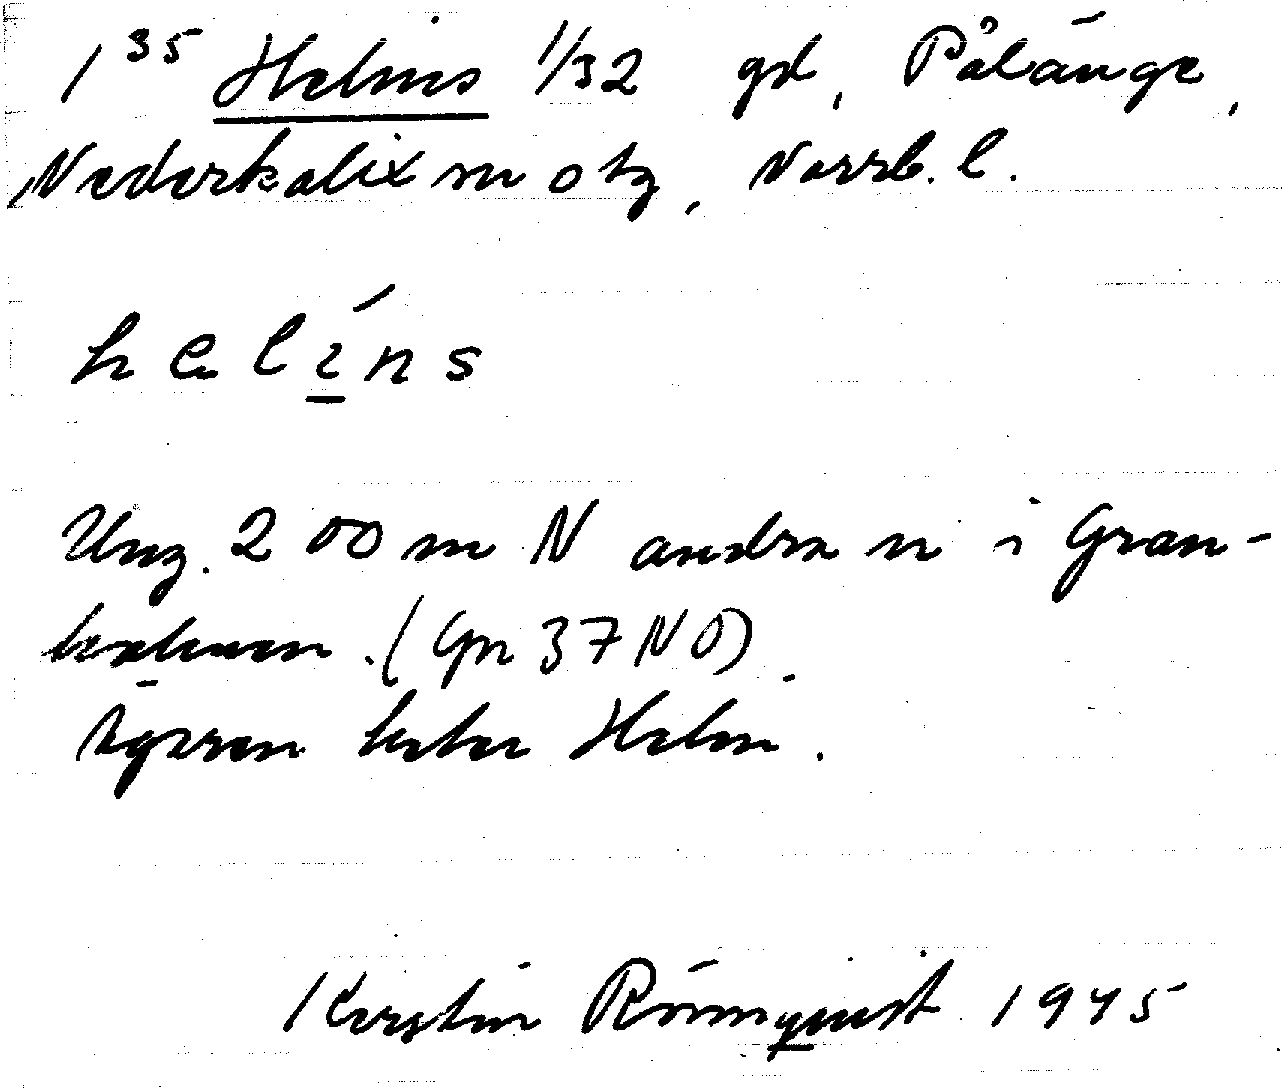 1³⁵ Helins 1/32 gd, Pålänge,
Nederkalix sn o tg, Norrb. l.
helíns
Ung. 200 m N andra n i Gran-
(Gn 37 NO)
Ägaren heter Helin.
Kerstin Rönnquist 1945